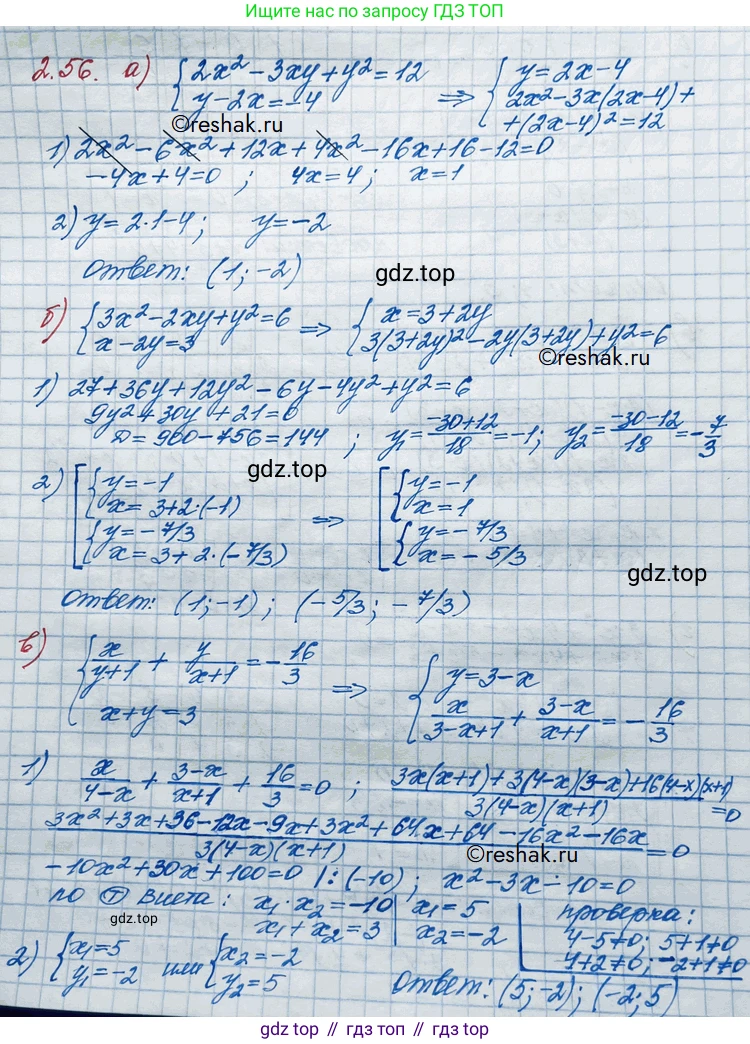 Инструменты по запросу ГДЗ ТОП
2.56. а) { 2x² - 3xy + y² = 12 ; y - 2x = -4 ⇒ { y = 2x - 4 ; 2x² - 3x(2x-4) +
+ (2x-4)² = 12
©reshak.ru
1) 2x² - 6x² + 12x + 4x² - 16x + 16 - 12 = 0
-4x + 4 = 0 ; 4x = 4 ; x = 1
2) y = 2·1 - 4 ; y = -2
Ответ: (1; -2)
gdz.top
б) { 3x² - 2xy + y² = 6 ; x - 2y = 3 ⇒ { x = 3 + 2y ; 3(3+2y)² - 2y(3+2y) + y² = 6
©reshak.ru
1) 27 + 36y + 12y² - 6y - 4y² + y² = 6
9y² + 30y + 21 = 0
D = 900 - 756 = 144 ; y₁ = (-30+12)/18 = -1 ; y₂ = (-30-12)/18 = -7/3
gdz.top
2) [ { y = -1 ; x = 3 + 2·(-1) ⇒ [ { y = -1 ; x = 1
{ y = -7/3 ; x = 3 + 2·(-7/3) { y = -7/3 ; x = -5/3
gdz.top
Ответ: (1; -1) ; (-5/3 ; -7/3)
в) { x/(y+1) + y/(x+1) = -16/3 ; x + y = 3 ⇒ { y = 3 - x ; x/(3-x+1) + (3-x)/(x+1) = -16/3
1) x/(4-x) + (3-x)/(x+1) + 16/3 = 0 ; (3x(x+1) + 3(4-x)(3-x) + 16(4-x)(x+1))/(3(4-x)(x+1)) = 0
(3x² + 3x + 36 - 12x - 9x + 3x² + 64x + 64 - 16x² - 16x)/(3(4-x)(x+1)) = 0
©reshak.ru
-10x² + 30x + 100 = 0 |:(-10) ; x² - 3x - 10 = 0
по Т Виета: x₁·x₂ = -10 | x₁ = 5
x₁ + x₂ = 3 | x₂ = -2
gdz.top
проверка:
4-5≠0; 5+1≠0
4+2≠0; -2+1≠0
2) { x₁ = 5 ; y₁ = -2 или { x₂ = -2 ; y₂ = 5
Ответ: (5; -2) ; (-2; 5)
gdz.top // гдз.топ // gdz.top // гдз.топ